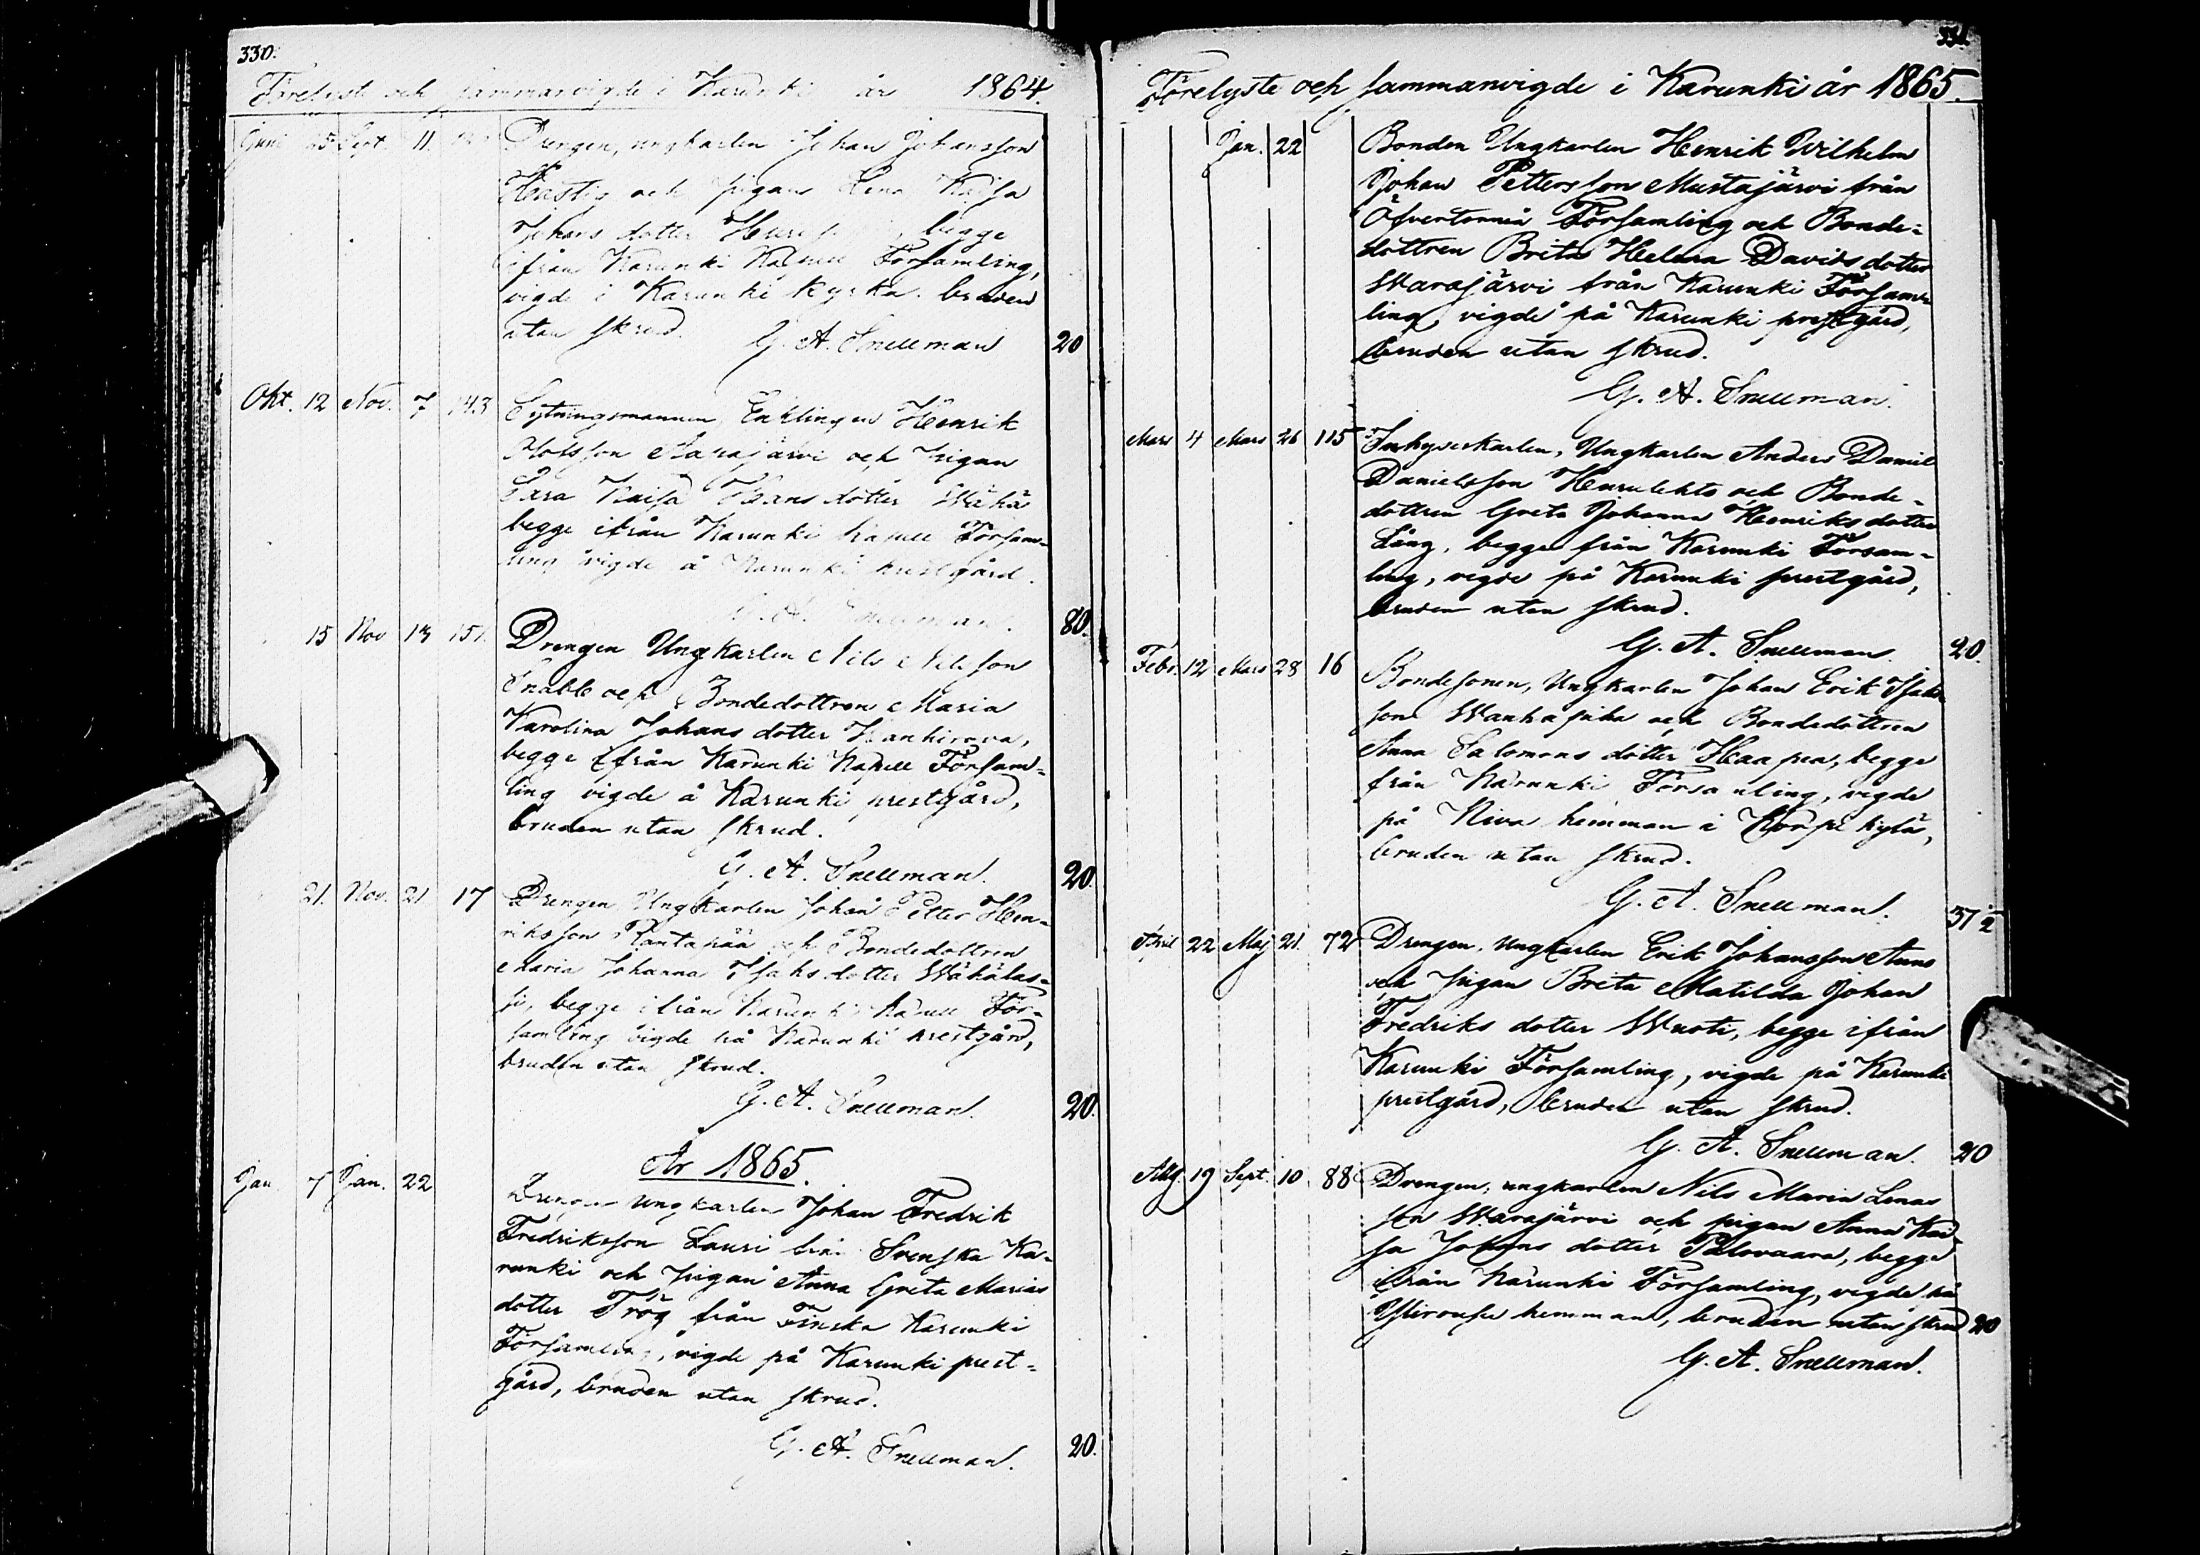 330.
Förelyste och sammanvigde i Karunki år 1864.
Juni 25 Sept. 11. Drengen, ungkarlen Johan Johansson
och pigan Lena Kajsa
Johans dotter begge
ifrån Karunki Kapell Församling,
vigde i Karunki kyrka. bruden
utan skrud. G. A. Snellman 20
Okt. 12 Nov. 7 143 Sytningsmannen, Enklingen Henrik
och pigan
Kaisa Hans dotter
begge ifrån Karunki Kapell Försam-
ling vigde å Karunki prestgård.
G. A. Snellman. 80.
15 Nov 13 151. Drengen Ungkarlen Nils Nilsson
Snabb och Bondedottren Maria
Karolina Johans dotter Kankirova,
begge ifrån Karunki Kapell Försam-
ling vigde å Karunki prestgård,
bruden utan skrud.
G. A. Snellman. 20.
21. Nov. 21 17 Drengen Ungkarlen Johan Petter Hen-
riksson Rantapää och Bondedottren
Maria Johanna Isaks dotter
begge ifrån Karunki Kapell För-
samling vigde på Karunki prestgård,
bruden utan skrud.
G. A. Snellman. 20.
År 1865.
Jan 7 Jan. 22 Drengen ungkarlen Johan Fredrik
Fredriksson Lauri från Svenska Ka-
runki och pigan Anna Greta Marias
dotter Trög från Finska Karunki
Församling, vigde på Karunki prest-
gård, bruden utan skrud.
G. A. Snellman. 20.
331.
Förelyste och sammanvigde i Karunki år 1865.
Jan. 22 Bonden Ungkarlen Henrik Wilhelm
Johan Pettersson Mustajärvi från
Öfvertorneå Församling och Bonde-
dottren Brita Helena Davids dotter
Warajärvi från Karunki Försam-
ling, vigde på Karunki prestgård,
bruden utan skrud.
G. A. Snellman.
Mars 4 Mars 26 115 Inhyseskarlen, Ungkarlen Anders Daniel
Danielsson Hurulehto och Bonde-
dottren Greta Johanna Henriks dotter
Lång, begge från Karunki Försam-
ling, vigde på Karunki prestgård,
bruden utan skrud.
G. A. Snellman. 20.
Febr. 12 Mars 28 16 Bondesonen, Ungkarlen Johan Erik Isaks
son Wanhapiha och Bondedottren
Anna Salomons dotter Haapea, begge
från Karunki Församling, vigde
på Niva hemman i Korpikylä,
bruden utan skrud.
G. A. Snellman. 37 1/2
April 22 Maj 21. 72 Drengen, ungkarlen Erik Johansson Anno
och pigan Brita Matilda Johan
Fredriks dotter Wuoti, begge ifrån
Karunki Församling, vigde på Karunki
prestgård, bruden utan skrud.
G. A. Snellman. 20
Aug. 19 Sept. 10. 88 Drengen, ungkarlen Nils Maria Lenas
son Warajärvi och pigan Anna Kai-
sa Johans dotter Palovaara, begge
ifrån Karunki Församling, vigde på
hemman, bruden utan skrud 20
G. A. Snellman.